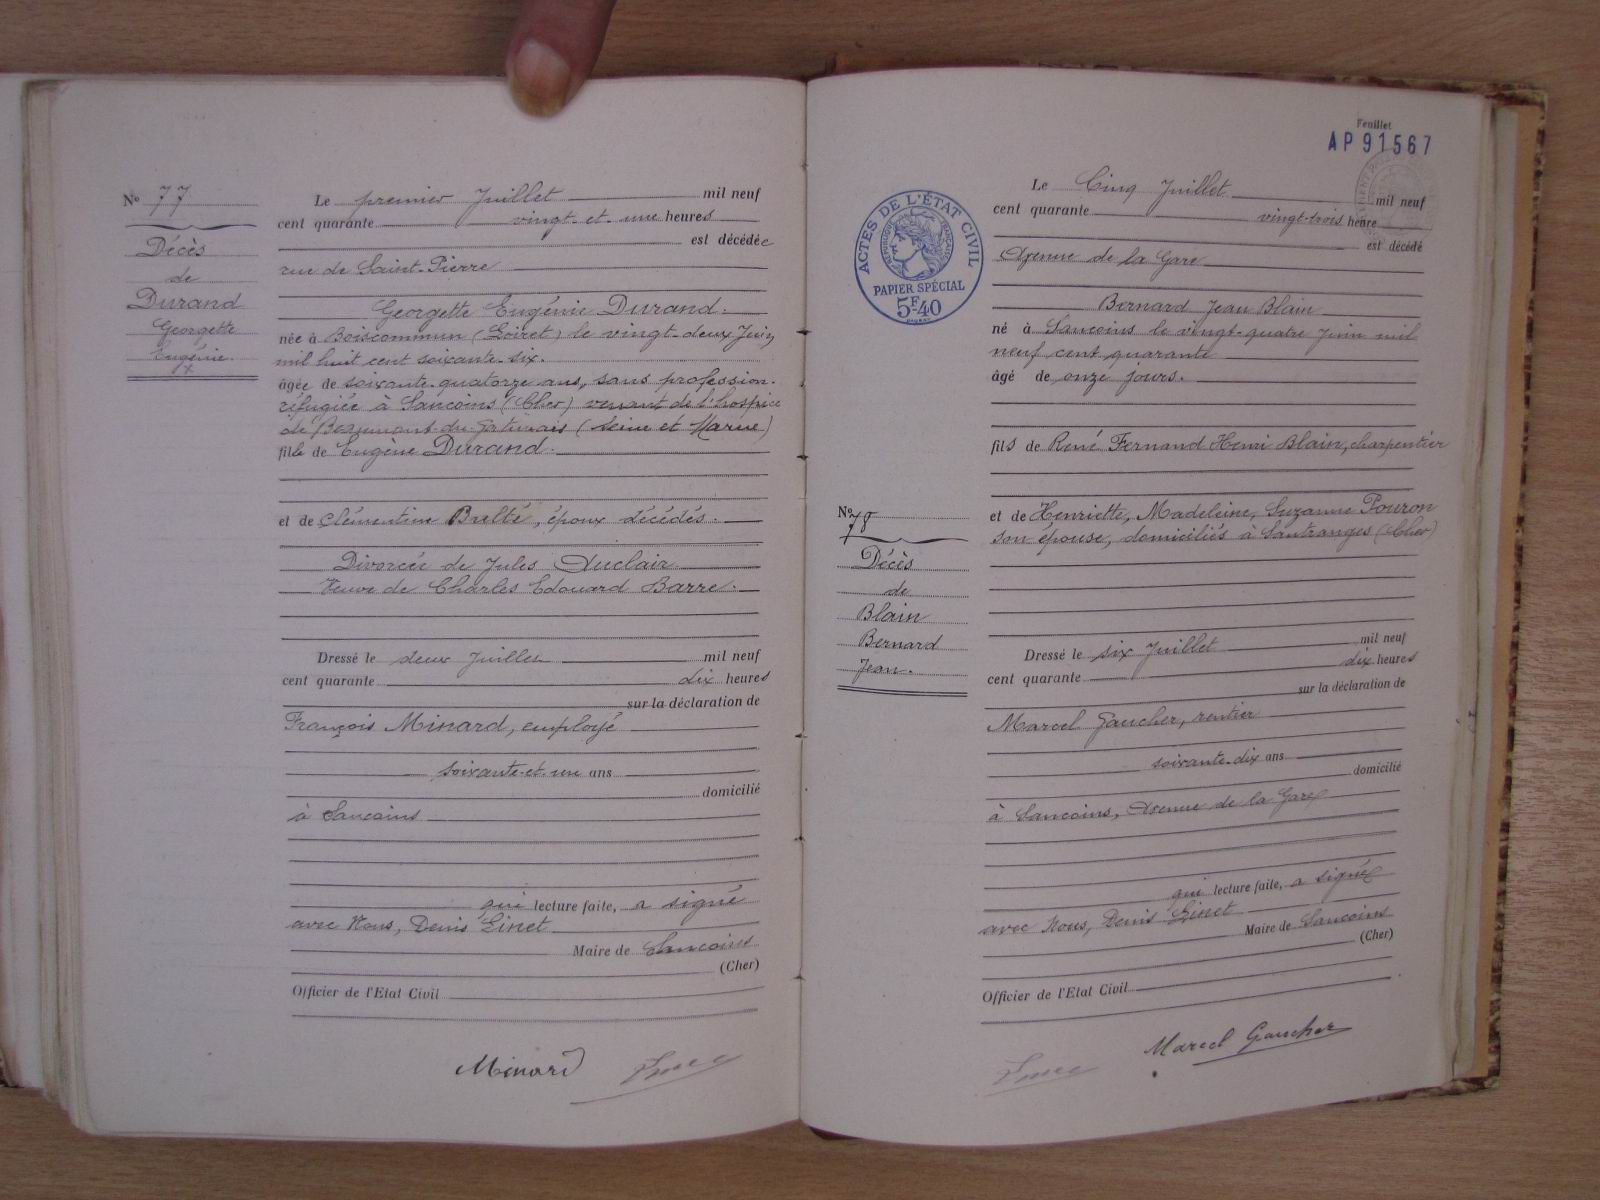 Nº 77
Décès
de
Durand
Georgette
Eugénie.
Le premier Juillet mil neuf
cent quarante vingt et une heures
est décédée
rue de Saint-Pierre
Georgette Eugénie Durand.
née à Boiscommun (Loiret) le vingt-deux Juin
mil huit cent soixante-six.
âgée de soixante-quatorze ans, sans profession.
réfugiée à Sancoins (Cher) venant de l'hospice
de Beaumont-du-Gatinais (Seine et Marne)
fille de Eugène Durand.
et de Clémentine Brulté, époux décédés.
Divorcée de Jules Auclair
Veuve de Charles Edouard Barre.
Dressé le deux Juillet mil neuf
cent quarante dix heures
sur la déclaration de
François Minard, employé
soixante-et-un ans
domicilié
à Sancoins
qui lecture faite, a signé
avec Nous, Denis Linet
Maire de Sancoins
(Cher)
Officier de l'Etat Civil
Minard
Feuillet
AP91567
ACTES DE L'ÉTAT CIVIL
RÉPUBLIQUE FRANÇAISE
PAPIER SPÉCIAL
5F40
Nº 78
Décès
de
Blain
Bernard
Jean.
Le Cinq Juillet mil neuf
cent quarante vingt-trois heure
est décédé
Avenue de la Gare
Bernard Jean Blain
né à Sancoins le vingt-quatre Juin mil
neuf cent quarante
âgé de onze jours.
fils de René Fernand Henri Blain, charpentier
et de Henriette, Madeleine, Suzanne Pouron
son épouse, domiciliés à Santranges (Cher)
Dressé le six Juillet mil neuf
cent quarante dix heures
sur la déclaration de
Marcel Gaucher, rentier
soixante-dix ans
domicilié
à Sancoins, Avenue de la Gare
qui lecture faite, a signé
avec Nous, Denis Linet
Maire de Sancoins
(Cher)
Officier de l'Etat Civil
Marcel Gaucher